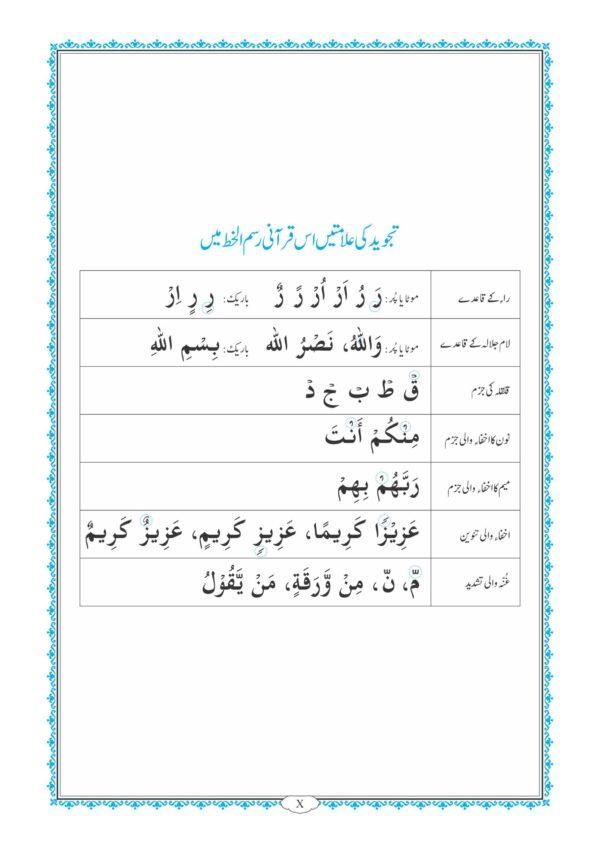 تجوید کی علامتیں اس قرآنی رسم الخط میں
راء کے قاعدے موٹا یا پُر: رَ رُ اَرْ اُرْ رً رٌ باریک: رِ رٍ اِرْ
لام جلالہ کے قاعدے موٹا یا پُر: وَاللهُ، نَصْرُ الله باریک: بِسْمِ اللهِ
قلقلہ کی جزم قْ طْ بْ جْ دْ
نون کا اخفاء والی جزم مِنْكُمْ أَنْتَ
میم کا اخفاء والی جزم رَبَّهُمْ بِهِمْ
اخفاء والی تنوین عَزِيْزًا كَرِيمًا، عَزِيزٍ كَرِيمٍ، عَزِيزٌ كَرِيمٌ
غُنّہ والی تشدید مّ، نّ، مِنْ وَّرَقَةٍ، مَنْ يَّقُوْلُ
X